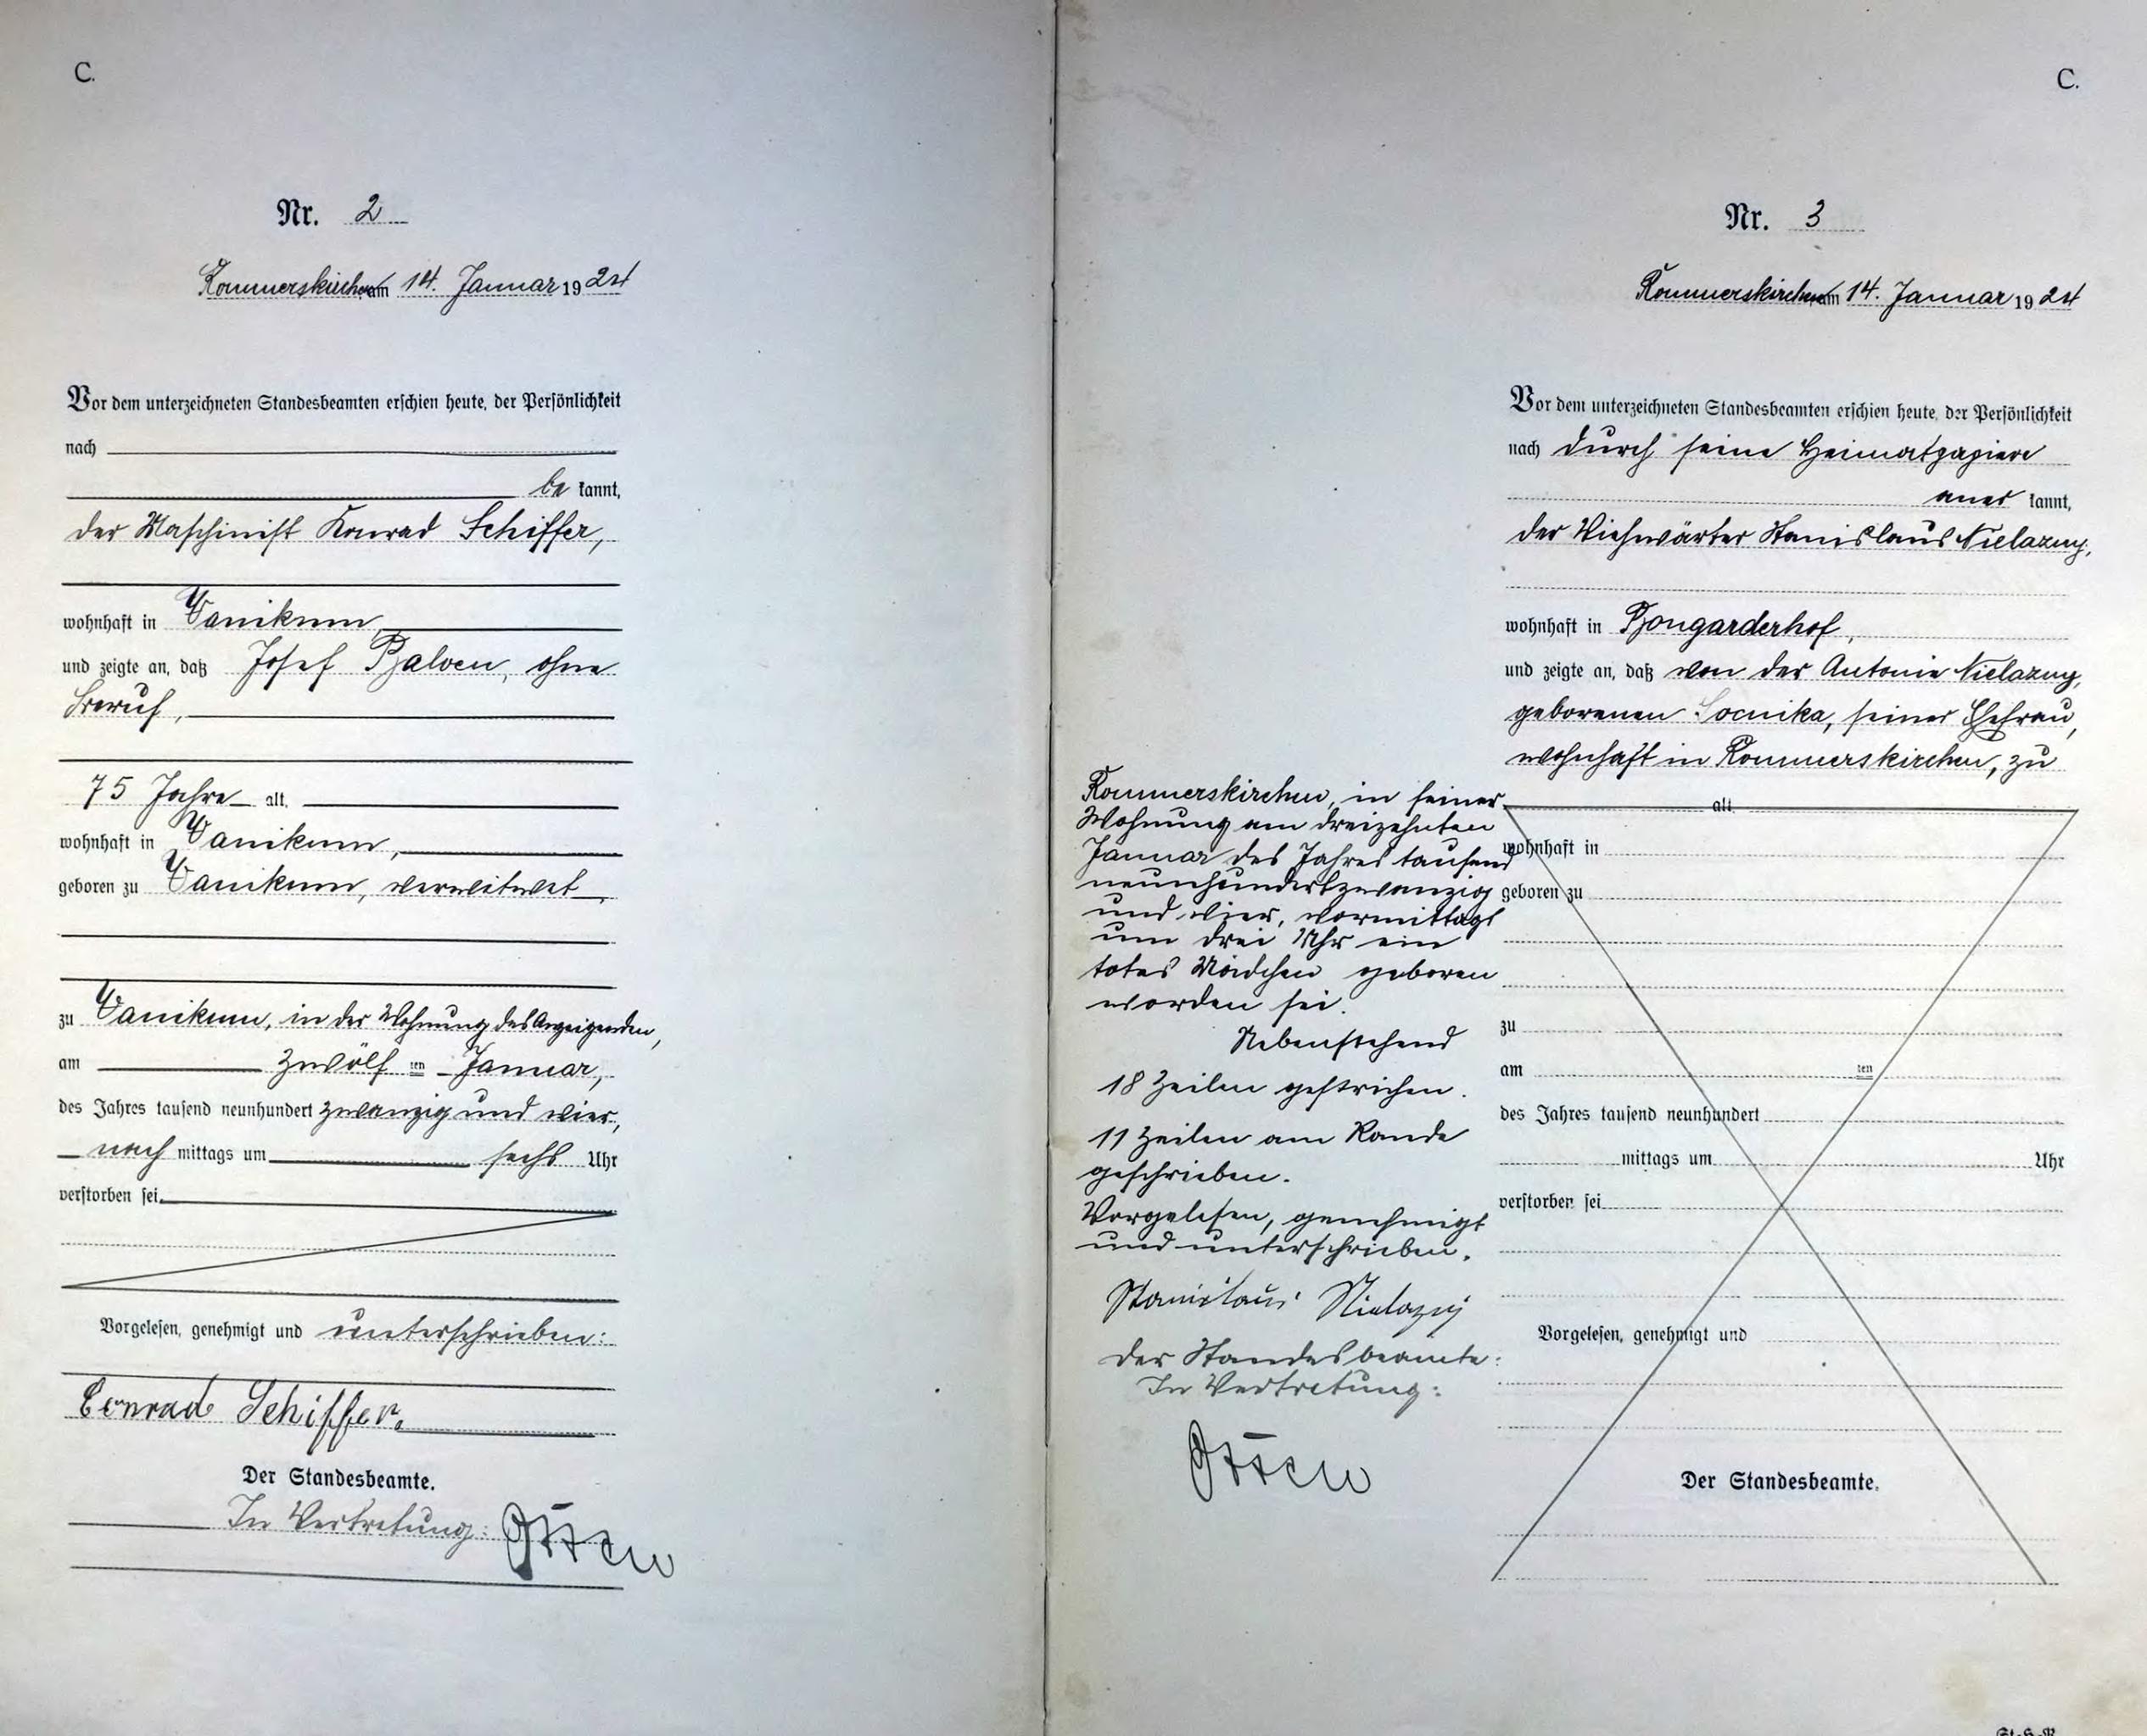 C.
Nr. 2
Rommerskirchen am 14. Januar 1924
Vor dem unterzeichneten Standesbeamten erschien heute, der Persönlichkeit
nach
be kannt,
der Maschinist Konrad Schiffer,
wohnhaft in Vanikum
und zeigte an, daß Josef Balven, ohne
Beruf,
75 Jahre alt,
wohnhaft in Vanikum,
geboren zu Vanikum, verwitwet,
zu Vanikum, in der Wohnung des Anzeigenden,
am zwölf ten Januar,
des Jahres tausend neunhundert zwanzig und vier,
nach mittags um sechs Uhr
verstorben sei.
Vorgelesen, genehmigt und unterschrieben:
Conrad Schiffer.
Der Standesbeamte.
In Vertretung: Otten
C.
Nr. 3
Rommerskirchen am 14. Januar 1924
Vor dem unterzeichneten Standesbeamten erschien heute, der Persönlichkeit
nach durch seine Heimatpapiere
aner kannt,
der Viehwärter Stanislaus
wohnhaft in Bongarderhof,
und zeigte an, daß von der Antonie
geborenen Socnika, seiner Ehefrau,
wohnhaft in Rommerskirchen, zu
Rommerskirchen, in seiner
Wohnung am dreizehnten
Januar des Jahres tausend
neunhundertzwanzig
und vier, vormittags
um drei Uhr ein
totes Mädchen geboren
worden sei.
Nebenstehend
18 Zeilen gestrichen.
11 Zeilen am Rande
geschrieben.
Vorgelesen, genehmigt
und unterschrieben.
Stanislaus
Der Standesbeamte:
In Vertretung:
Otten
alt,
wohnhaft in
geboren zu
zu
am ten
des Jahres tausend neunhundert
mittags um Uhr
verstorben sei
Vorgelesen, genehmigt und
Der Standesbeamte.